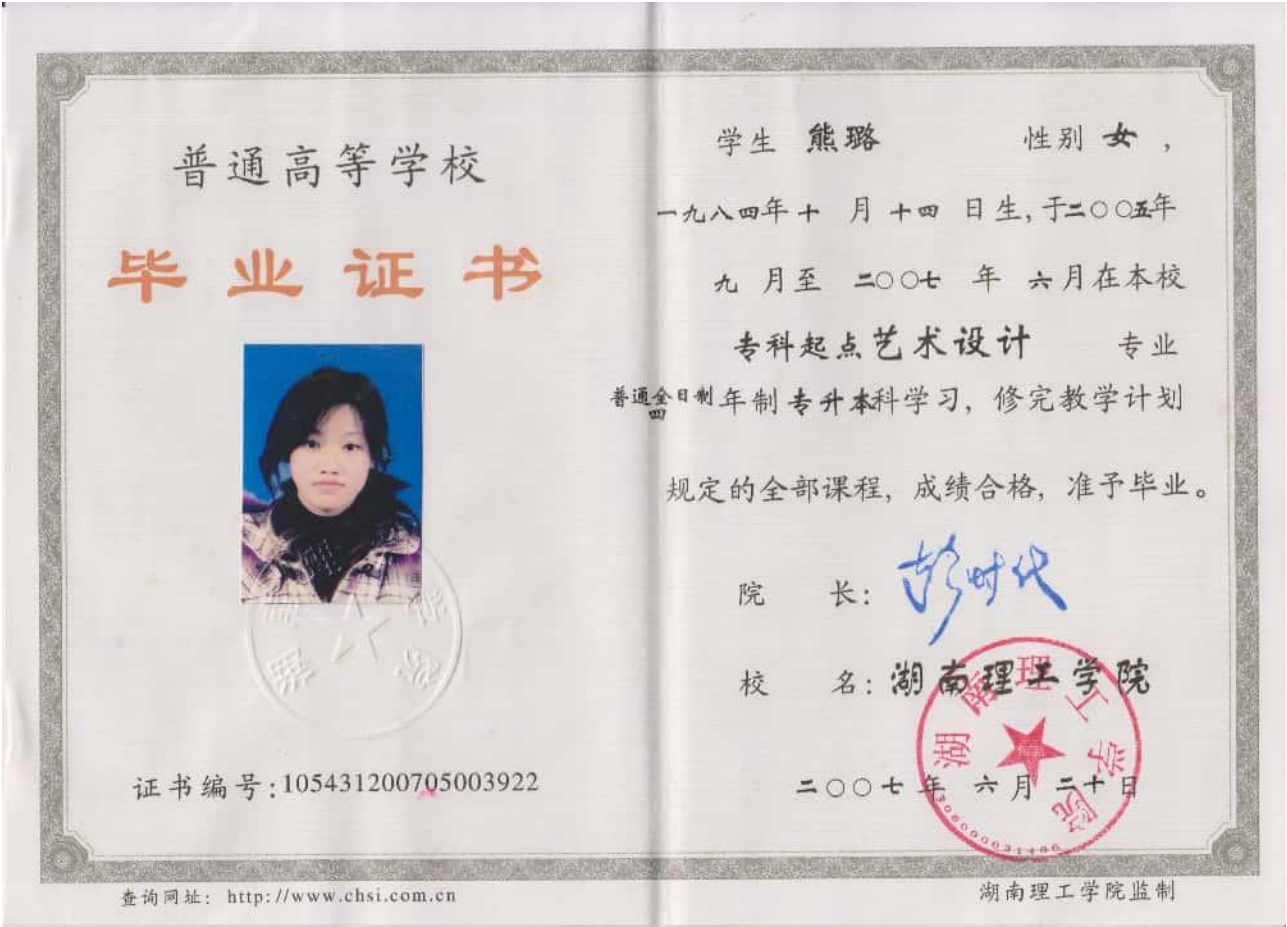 普通高等学校
毕业证书
证书编号:105431200705003922
查询网址: http://www.chsi.com.cn
学生 熊璐 性别 女,
一九八四年十 月 十四 日生,于二〇〇五年
九 月至 二〇〇七 年 六月在本校
专科起点艺术设计 专业
普通全日制四年制 专升本科学习, 修完教学计划
规定的全部课程, 成绩合格, 准予毕业。
院 长: 彭时代
校 名: 湖南理工学院
湖南理工学院
二〇〇七年 六月 二十日
湖南理工学院监制